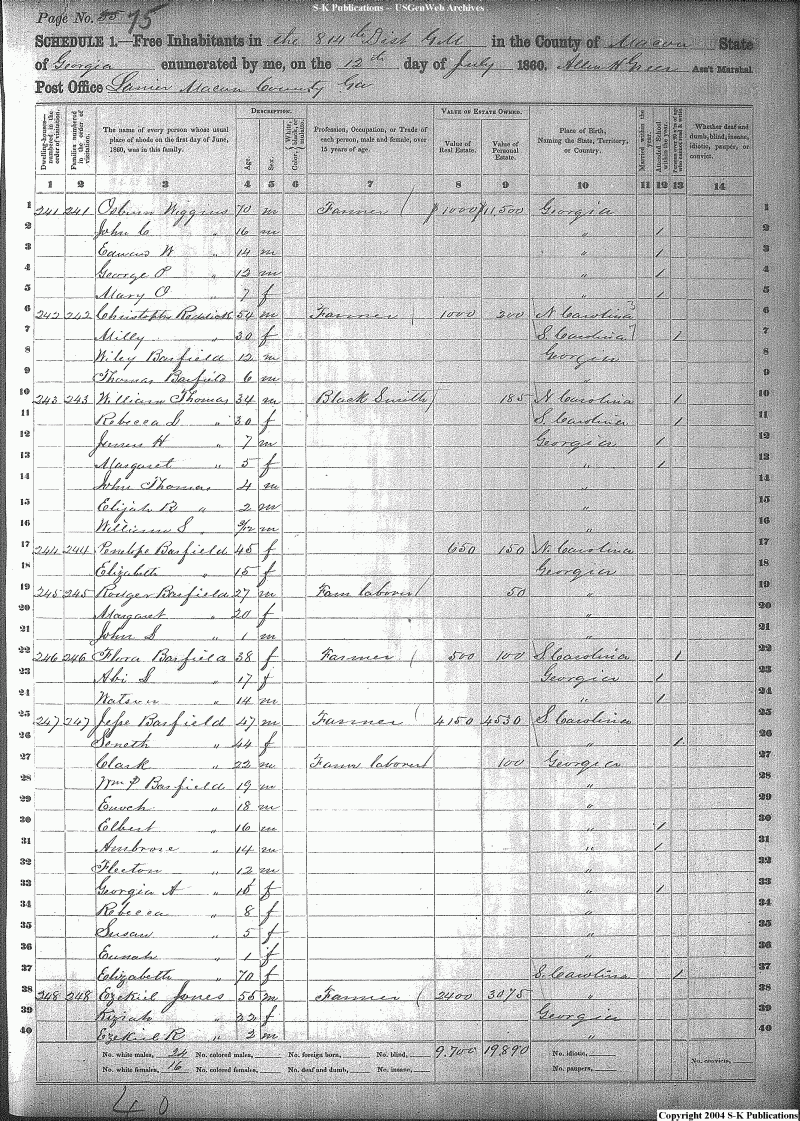 S-K Publications – USGenWeb Archives
Page No. 75
SCHEDULE 1.—Free Inhabitants in the 814th Dist G M in the County of Macon State
of Georgia enumerated by me, on the 12th day of July 1860. Allen H Greer Ass't Marshal.
Post Office Lanier Macon County Ga
DESCRIPTION. VALUE OF ESTATE OWNED.
Dwelling-houses—numbered in the order of visitation. Families numbered in the order of visitation. The name of every person whose usual place of abode on the first day of June, 1860, was in this family. Age. Sex. Color, White, black, or mulatto. Profession, Occupation, or Trade of each person, male and female, over 15 years of age. Value of Real Estate. Value of Personal Estate. Place of Birth, Naming the State, Territory, or Country. Married within the year. Attended School within the year. Whether deaf and dumb, blind, insane, idiotic, pauper, or convict.
1 2 3 4 5 6 7 8 9 10 11 12 13 14
1 241 241 Osburn Wiggins 70 m Farmer 1000 11500 Georgia 1
2 John C " 16 m " / 2
3 Edward W " 14 m " / 3
4 George P " 12 m " / 4
5 Mary O " 7 f " / 5
6 242 242 Christopher Reddick 54 m Farmer 1000 300 N Carolina 6
7 Milly " 30 f S. Carolina / 7
8 Wiley Barfield 12 m Georgia 8
9 Thomas Barfield 6 m " 9
10 243 243 William Thomas 34 m Black Smith 185 N Carolina / 10
11 Rebecca S " 30 f S. Carolina / 11
12 James H " 7 m Georgia / 12
13 Margaret " 5 f " / 13
14 John Thomas 4 m 14
15 Elijah R " 2 m " 15
16 William S " 9/12 m " 16
17 244 244 Penelope Barfield 45 f 650 150 N. Carolina 17
18 Elizabeth " 15 f Georgia 18
19 245 245 Barfield 27 m Farm laborer 50 " 19
20 Margaret " 20 f " 20
21 John S " 1 m " 21
22 246 246 Flora Barfield 38 f Farmer 500 100 S. Carolina / 22
23 Abi S " 17 f Georgia / 23
24 Watson " 14 m " / 24
25 247 247 Jesse Barfield 47 m Farmer 4150 4530 S. Carolina 25
26 Seneth " 44 f " / 26
27 Clark " 22 m Farm laborer 100 Georgia 27
28 Wm P Barfield 19 m " 28
29 Enoch " 18 m " 29
30 Elbert " 16 m " / 30
31 Ambrose " 14 m " / 31
32 " 12 m " 32
33 Georgia A " f " / 33
34 Rebecca " 8 f " 34
35 Susan " 5 f " 35
36 " 1 f " 36
37 Elizabeth " 70 f S. Carolina / 37
38 248 248 Ezekil Jones 55 m Farmer 2400 3075 " 38
39 Kiziah " 22 f Georgia 39
40 Ezekiel R " 2 m " 40
No. white males, 24 No. colored males, No. foreign born, No. blind, 9.700 19,890 No. idiotic, No. convicts,
No. white females, 16 No. colored females, No. deaf and dumb, No. insane, No. paupers,
40
Copyright 2004 S-K Publications